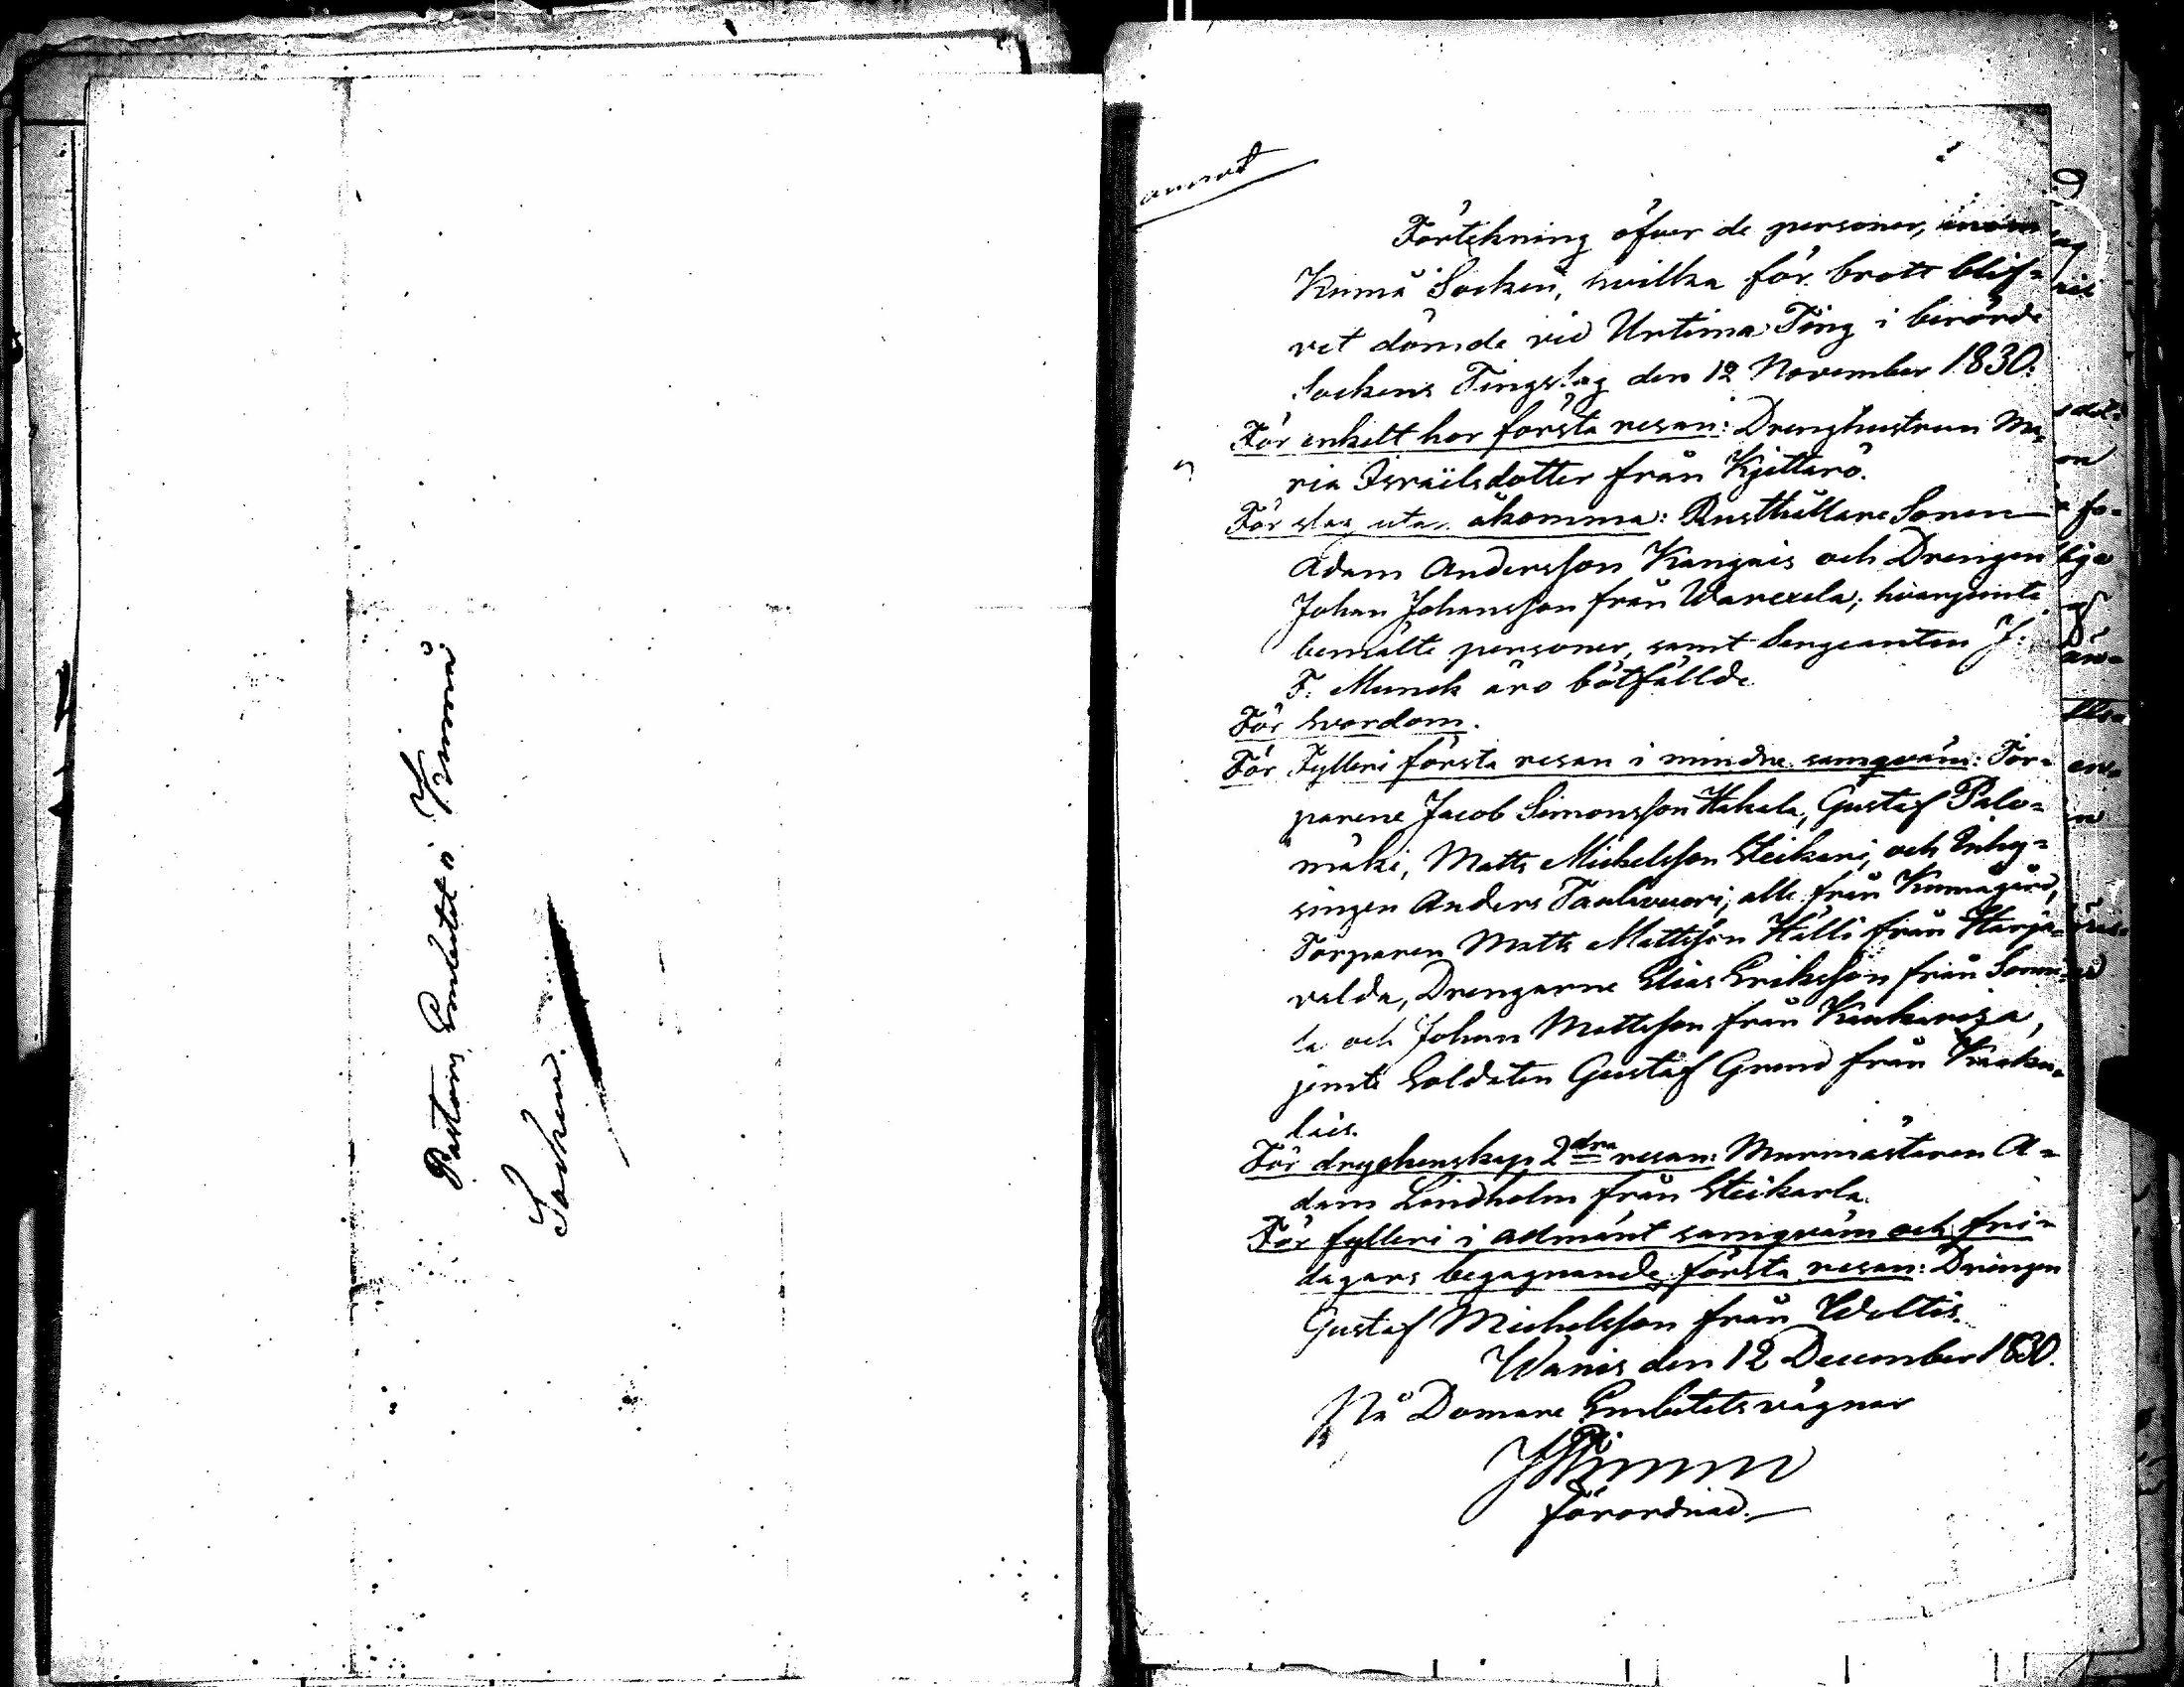 Pastors Embetet i Kumå
Socken.
Förtekning öfver de personer, inom
Kumå Socken, hvilka för brott blif-
vet dömde vid Urtima Ting i berörde
Sockens Tingslag den 12 November 1830.
För enkelt hor första resan: Drenghustrun Ma-
ria Israëlsdotter från Kjettarö.
För slag utan åkomma: Rusthållare Sonen
Adam Andersson Kangais och Drengen
Johan Johansson från ; hvarjemte
bemälte personer, samt Sergeanten J.
F. Munck äro bötfällde
För svordom.
För Fylleri första resan i mindre samqväm: Tor-
parene Jacob Simonsson Hakala, Gustaf Palo-
mäki, Matts Michelsson Steikari, och Inhy-
singen Anders Taulavuori, alle från Kumågård,
Torparen Matts Mattsson Hälli från Harja-
valda, Drengarne Elias Eriksson från Sonni-
la och Johan Mattsson från Kiukarsja,
jemte Soldaten Gustaf Grund från Kaaku-
lais.
För dryckenskap 2dra resan: Murmästaren A-
dam Lindholm från Steikarla.
För fylleri i allmänt samqväm och fri-
dagars begagnande första resan: Drängen
Gustaf Michelsson från Weltis.
Wanis den 12 December 1830.
På Domare Embetets vägnar
förordnad.